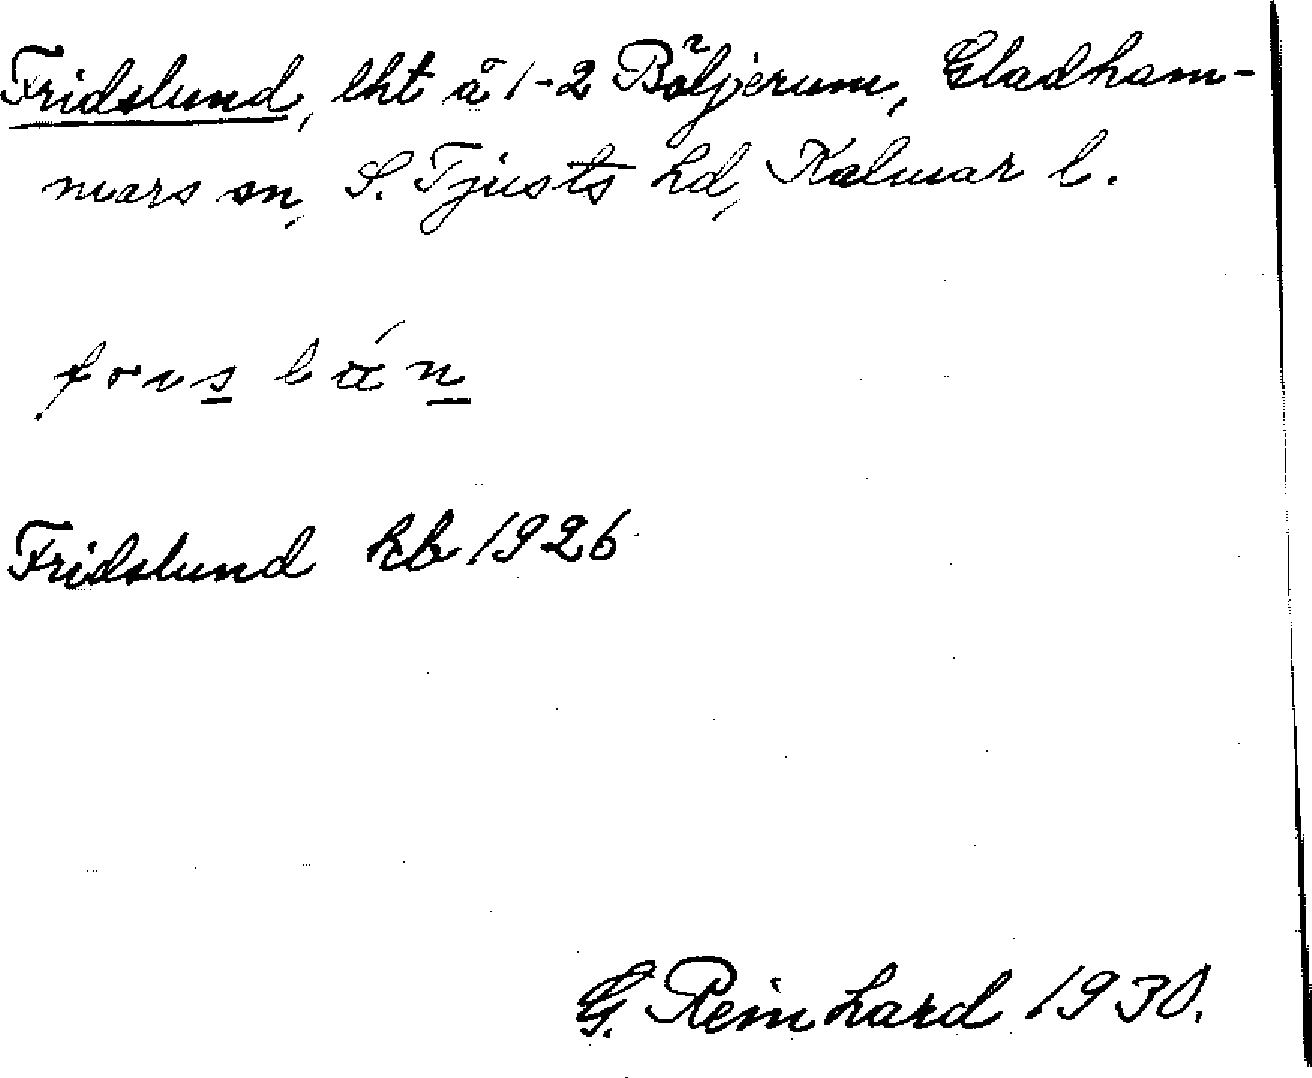 Fridslund, lht å 1-2 Böljerum, Gladham-
mars sn, S. Tjusts hd, Kalmar l.
Fridslund kb 1926
G. Reinhard 1930.